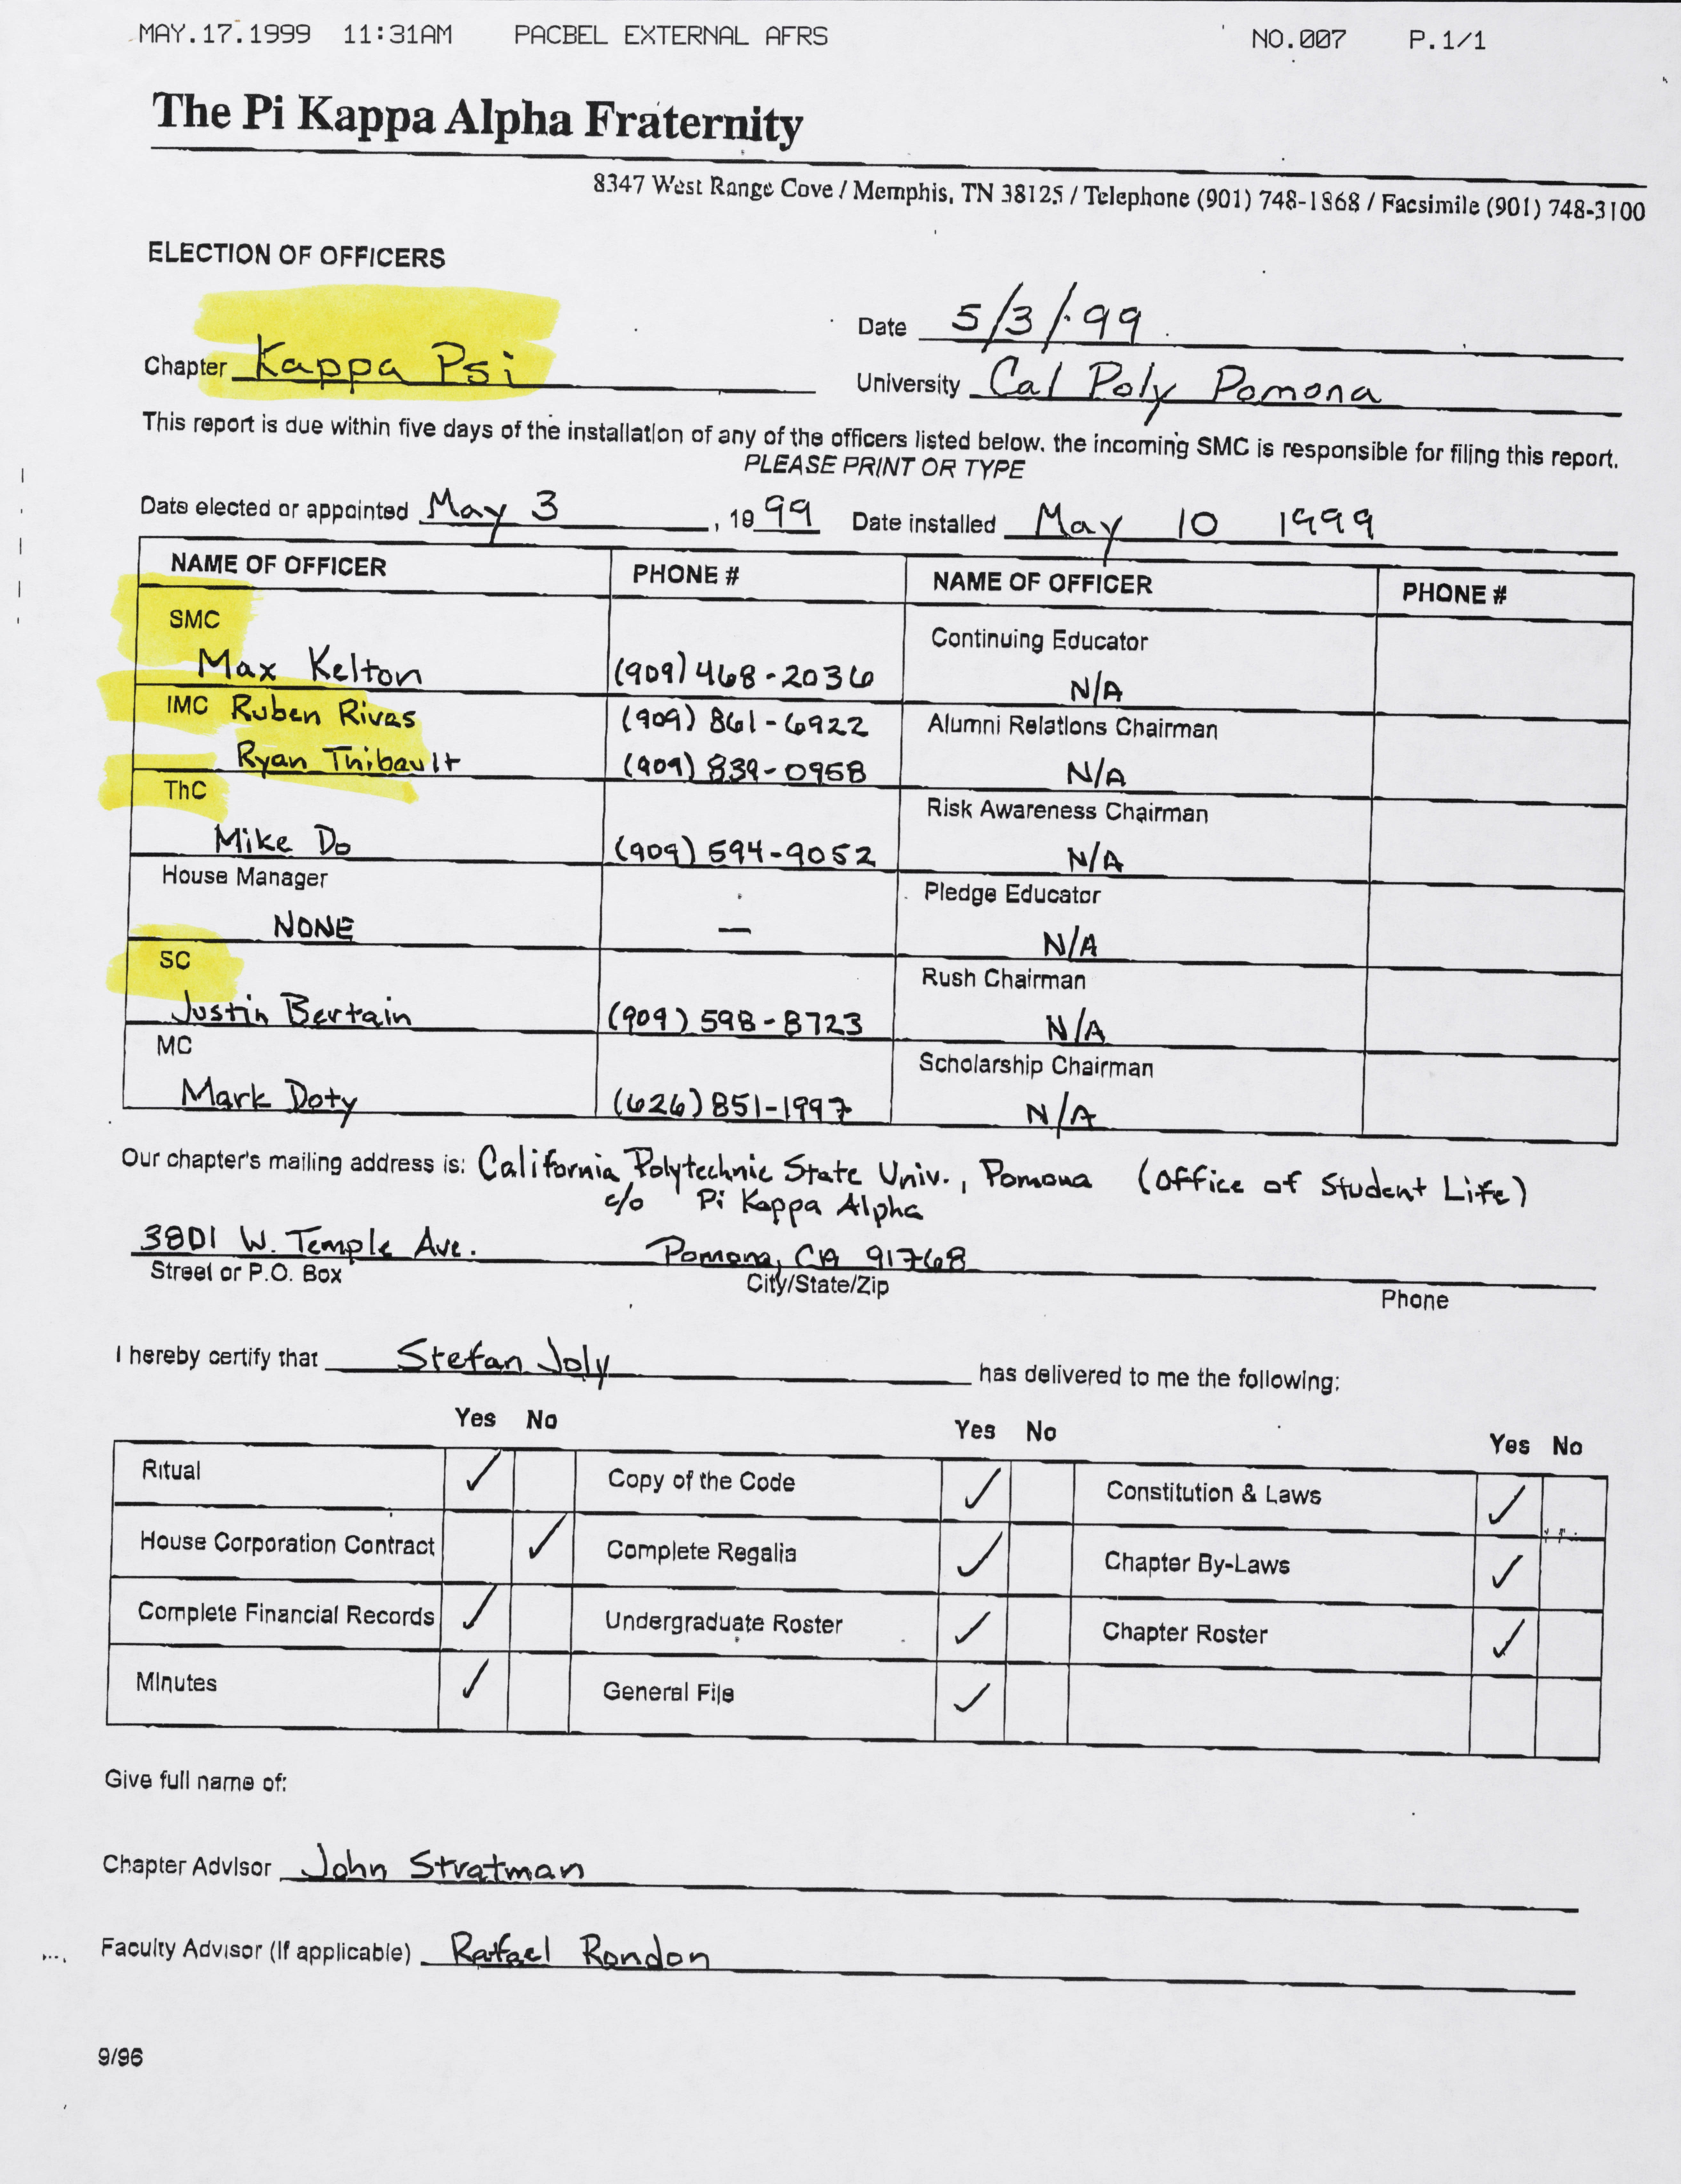 MAY.17.1999 11:31AM PACBEL EXTERNAL AFRS NO.007 P.1/1
The Pi Kappa Alpha Fraternity
8347 West Range Cove / Memphis, TN 38125 / Telephone (901) 748-1868 / Facsimile (901) 748-3100
ELECTION OF OFFICERS
Date 5/3/99
Chapter Kappa Psi
University Cal Poly Pomona
This report is due within five days of the installation of any of the officers listed below. the incoming SMC is responsible for filing this report.
PLEASE PRINT OR TYPE
Date elected or appointed May 3, 1999 Date installed May 10 1999
NAME OF OFFICER PHONE # NAME OF OFFICER PHONE #
SMC Continuing Educator
Max Kelton (909) 468-2036 N/A
IMC Ruben Rivas (909) 861-6922 Alumni Relations Chairman
Ryan Thibault (909) 839-0958 N/A
ThC Risk Awareness Chairman
Mike Do (909) 594-9052 N/A
House Manager Pledge Educator
NONE — N/A
SC Rush Chairman
Justin Bertain (909) 598-8723 N/A
MC Scholarship Chairman
Mark Doty (626) 851-1997 N/A
Our chapter's mailing address is: California Polytechnic State Univ., Pomona (Office of Student Life)
c/o Pi Kappa Alpha
3801 W. Temple Ave. Pomona, CA 91768
Street or P.O. Box City/State/Zip Phone
I hereby certify that Stefan Joly has delivered to me the following:
Yes No Yes No Yes No
Ritual ✓ Copy of the Code ✓ Constitution & Laws ✓
House Corporation Contract ✓ Complete Regalia ✓ Chapter By-Laws ✓
Complete Financial Records ✓ Undergraduate Roster ✓ Chapter Roster ✓
Minutes ✓ General File ✓
Give full name of:
Chapter Advisor John Stratman
Faculty Advisor (If applicable) Rafael Rondon
9/96